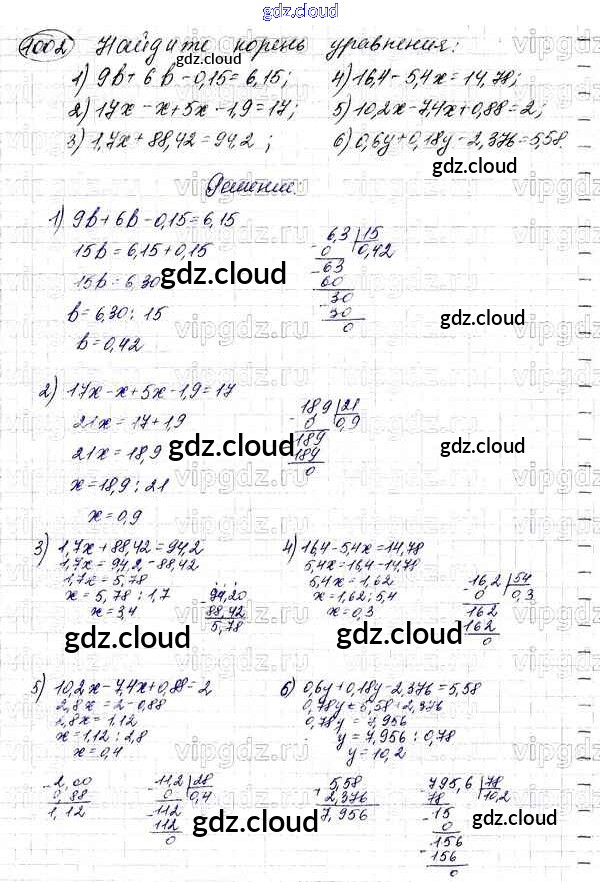 gdz.cloud
1002 Найдите корень уравнения:
1) 9b+6b-0,15=6,15; 4) 16,4-5,4x=14,78;
2) 17x-x+5x-1,9=17; 5) 10,2x-7,4x+0,88=2;
3) 1,7x+88,42=94,2; 6) 0,6y+0,18y-2,376=5,58.
Решение.
1) 9b+6b-0,15=6,15
15b=6,15+0,15
15b=6,30
b=6,30:15
b=0,42
6,3 15
0 0,42
63
60
30
30
0
2) 17x-x+5x-1,9=17
21x=17+1,9
21x=18,9
x=18,9:21
x=0,9
18,9 21
0 0,9
189
189
0
3) 1,7x+88,42=94,2
1,7x=94,2-88,42
1,7x=5,78
x=5,78:1,7
x=3,4
94,20
88,42
5,78
4) 16,4-5,4x=14,78
5,4x=16,4-14,78
5,4x=1,62
x=1,62:5,4
x=0,3
16,2 54
0 0,3
162
162
0
5) 10,2x-7,4x+0,88=2
2,8x=2-0,88
2,8x=1,12
x=1,12:2,8
x=0,4
2,00
0,88
1,12
11,2 28
0 0,4
112
112
0
6) 0,6y+0,18y-2,376=5,58
0,78y=5,58+2,376
0,78y=7,956
y=7,956:0,78
y=10,2
5,58
2,376
7,956
795,6 78
78 10,2
15
0
156
156
0
gdz.cloud
gdz.cloud
gdz.cloud
gdz.cloud
gdz.cloud
gdz.cloud
gdz.cloud
gdz.cloud
gdz.cloud
gdz.cloud
gdz.cloud
vipgdz.ru